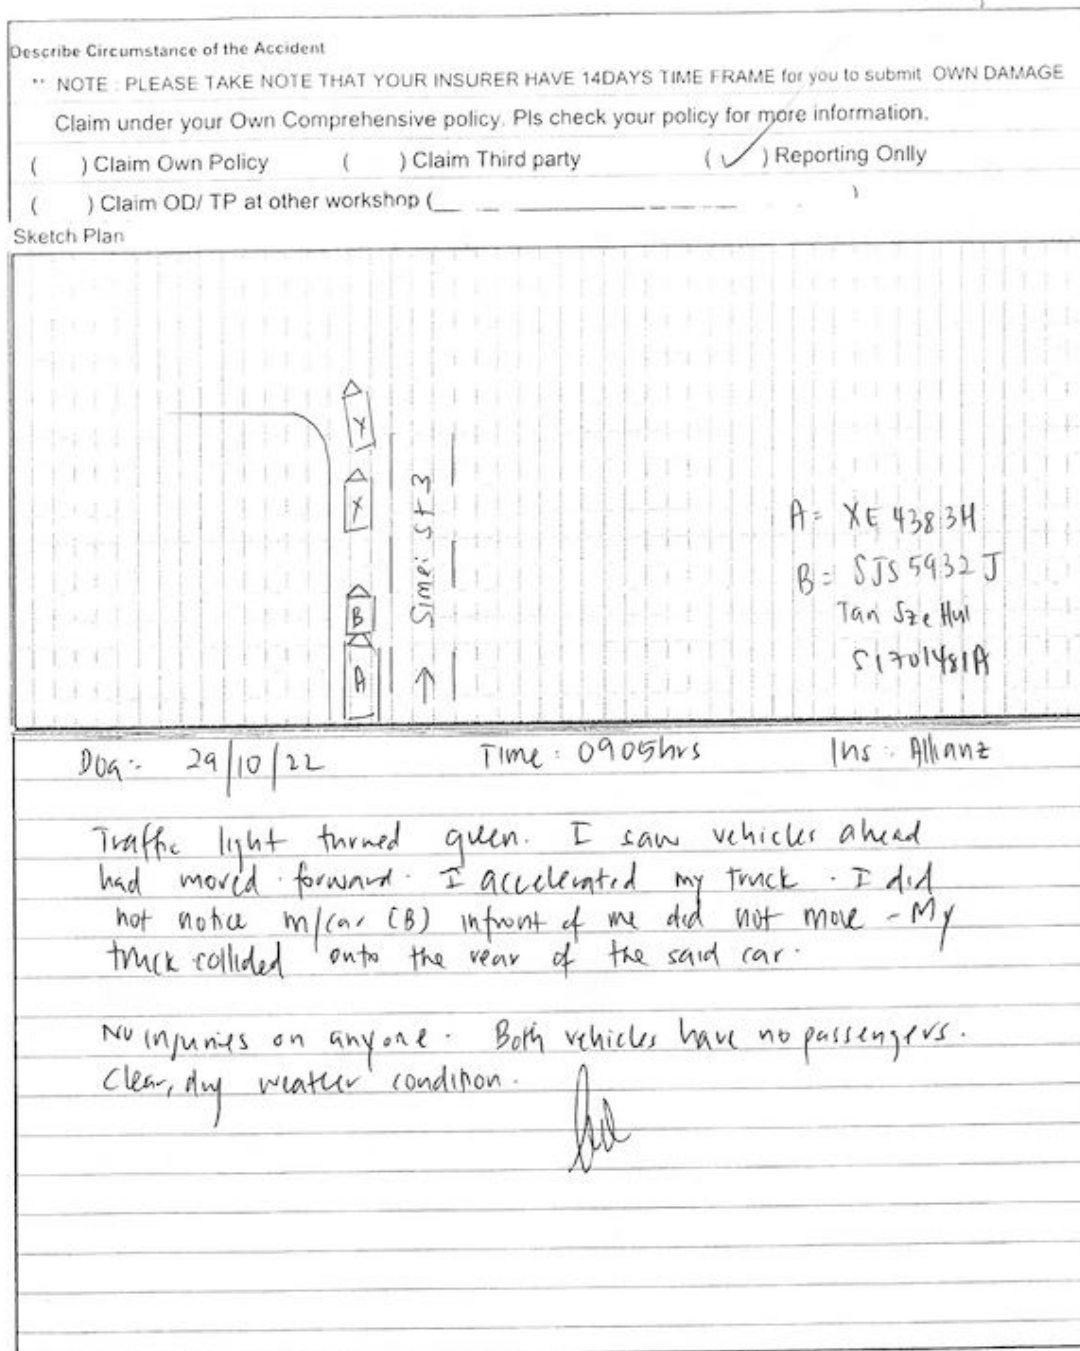 Describe Circumstance of the Accident
** NOTE : PLEASE TAKE NOTE THAT YOUR INSURER HAVE 14DAYS TIME FRAME for you to submit OWN DAMAGE
Claim under your Own Comprehensive policy. Pls check your policy for more information.
( ) Claim Own Policy ( ) Claim Third party ( ✓ ) Reporting Onlly
( ) Claim OD/ TP at other workshop (__ _ ____________ ____ )
Sketch Plan
Y
X
B
A
→ Simei St 3
A = XE 4383H
B = SJS 5932 J
Tan Sze Hui
S1701481A
DOA :- 29/10/22 Time : 0905hrs Ins : Allianz
Traffic light turned green. I saw vehicles ahead
had moved forward. I accelerated my truck. I did
not notice m/car (B) infront of me did not move - My
truck collided onto the rear of the said car.
No injuries on anyone. Both vehicles have no passengers.
Clear, dry weather condition.